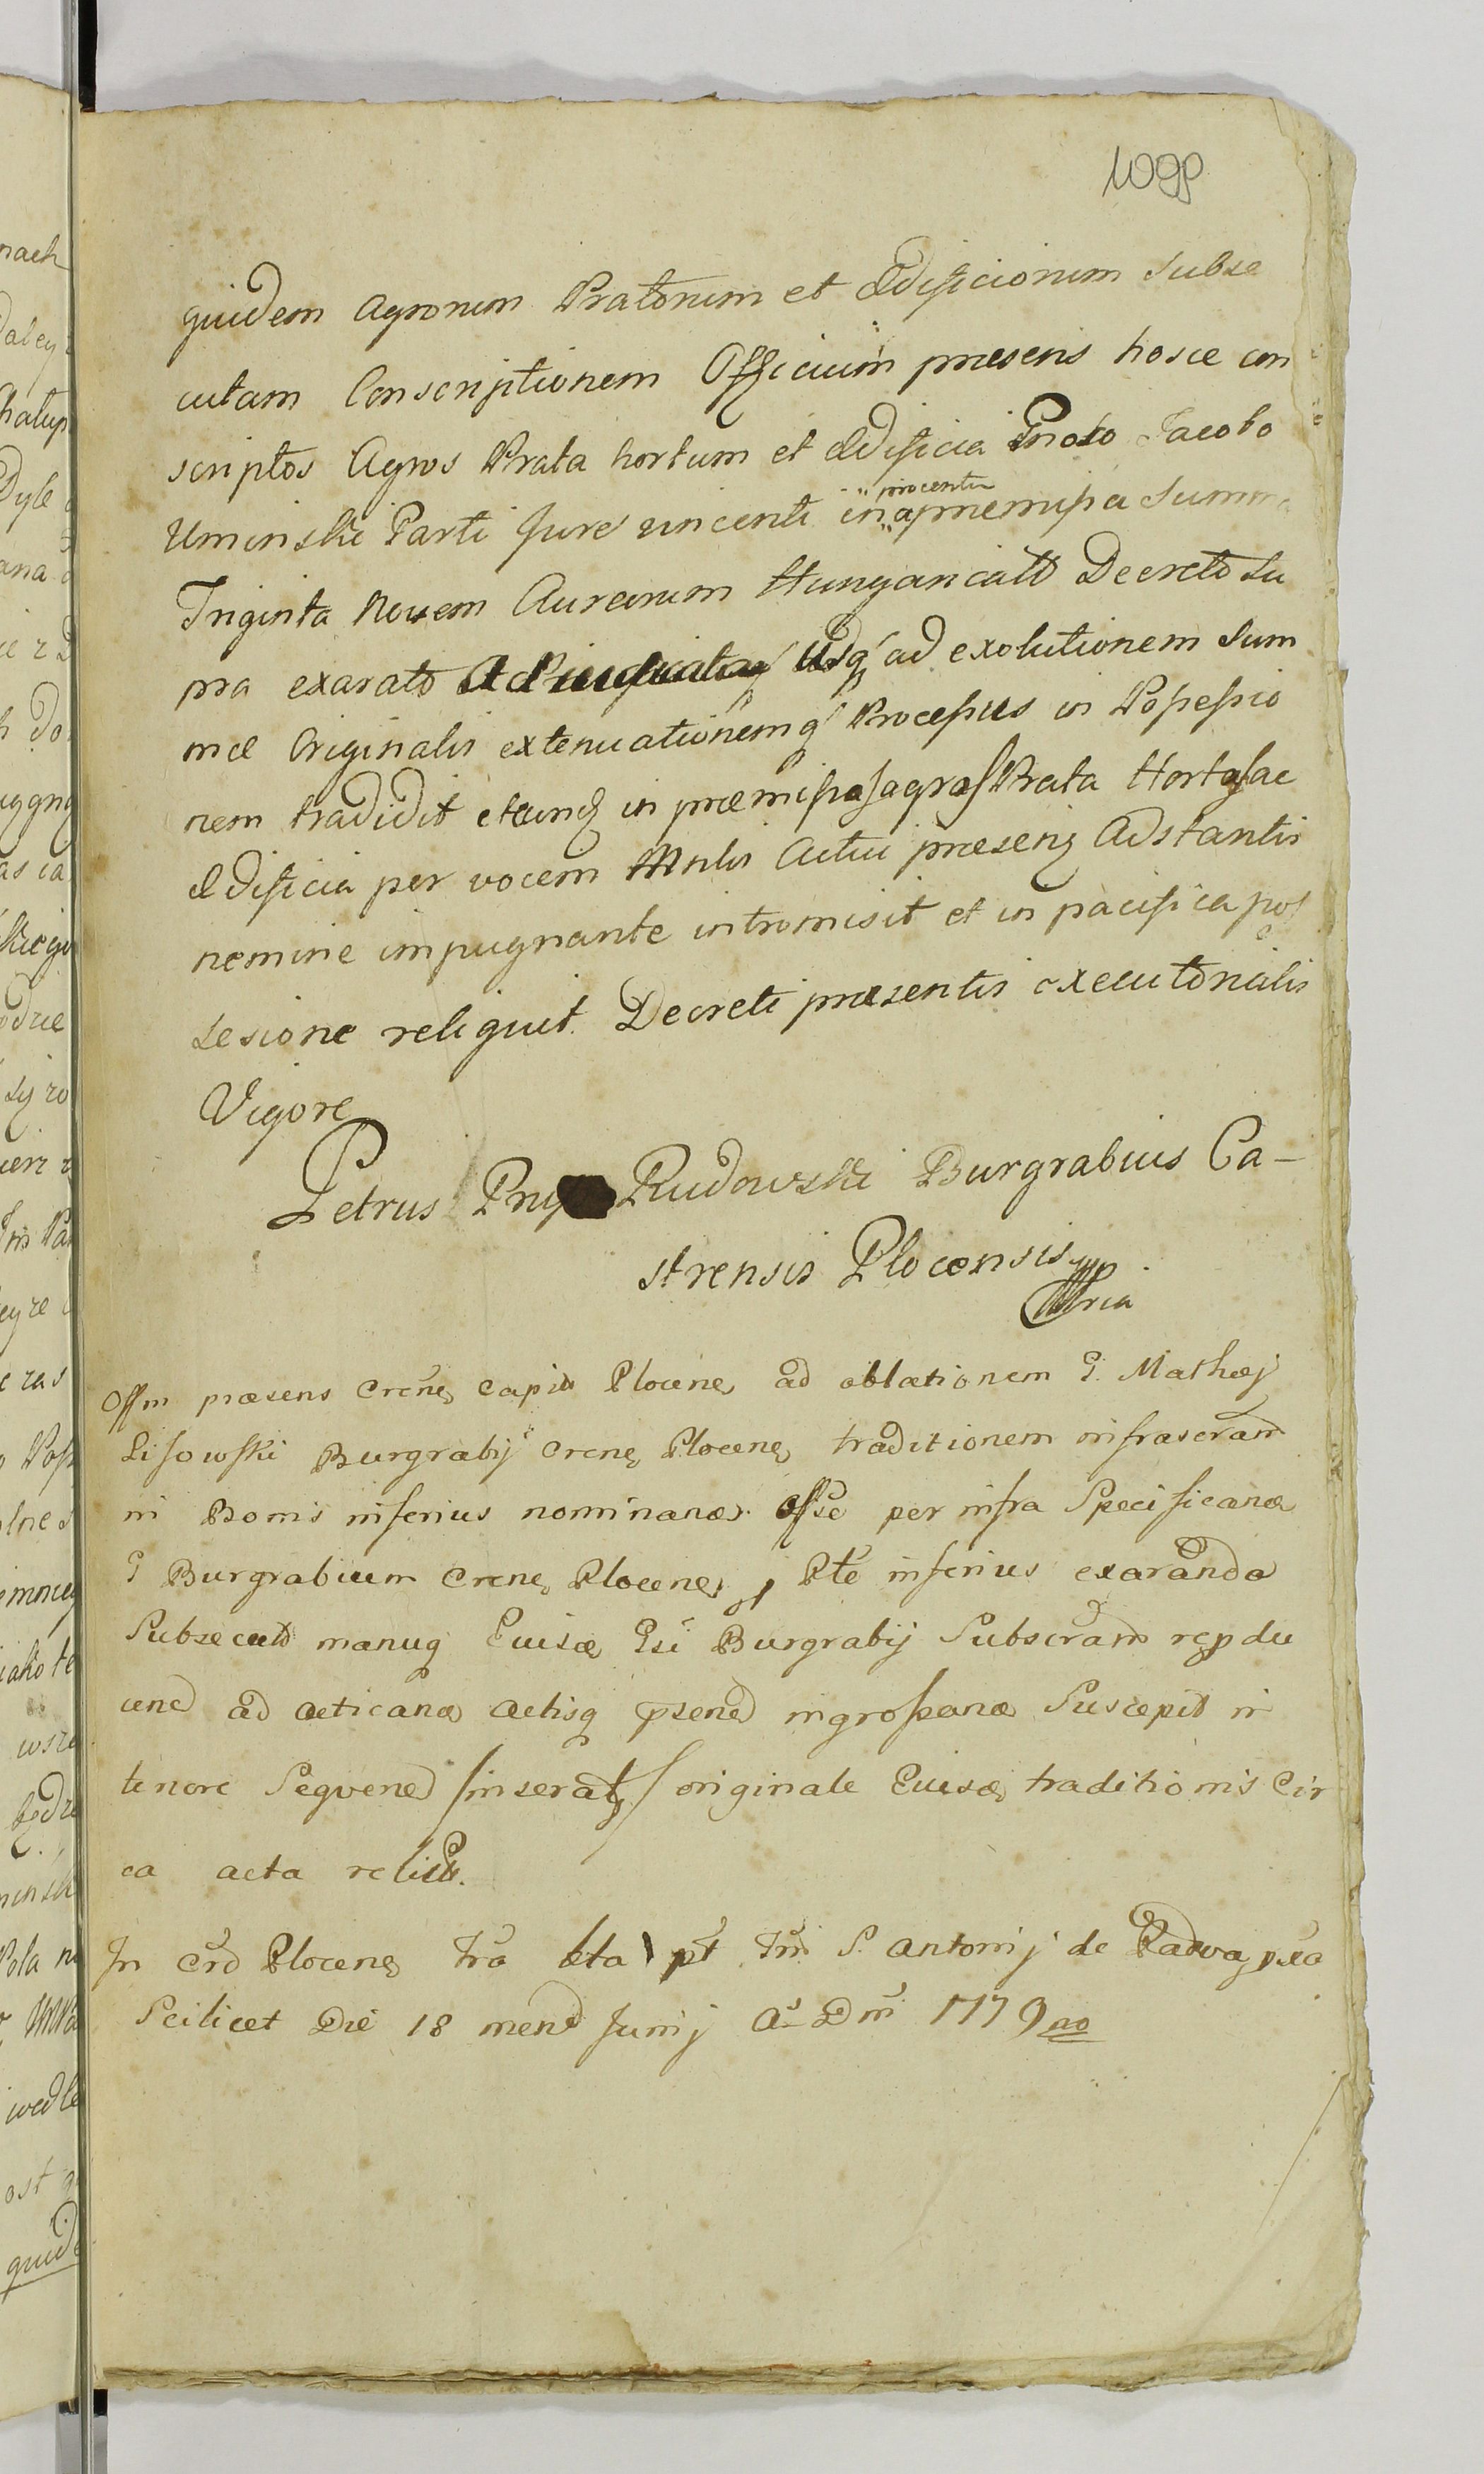 1099
quidem Agrorum Pratorum et Ædificiorum Subse
cutam Conscriptionem Officium præsens hosce con
scriptos Agros Prata hortum et Ædificia Gnoso Jacobo
procentu
Uminski Parti Jure vincenti in a præmissa Summa
Triginta Novem Aureorum Hungaricall Decreto Su
pra exarato Usq ad exolutionem Sum
mæ Originalis extenuationemq Processus in Possessio
nem tradidit eteunq in præmissos agros Prata Hortos ac
Ædificia per vocem Mnlis Actui præsenz Adstantis
nemine impugnante intromisit et in pacifica pos
sesione reliquit. Decreti præsentis executorialis
Vigore
Petrus Rudowski Burgrabius Ca-
strensis Plocensis mp
Offm præsens Crene Capit Plocene ad oblationem G. Mathæj
Lisowski Burgrabij Crene Plocene traditionem infrascram
in Bonis inferius nominan Offse per infra Specifican
G Burgrabium Crene Plocene Pte inferius exaranda
Subsecut manuq Ejusd Gsi Burgrabij Subscram repdu
cend ad acticand actisq psend ingrossand Suscepit in
tenore Seqvend /inserat/ originale Ejusd traditionis Cir
ca acta relict.
In Crd Plocene fra 6ta pt fm S. Antonij de Padva pxa
Scilicet Die 18 mend Junij A Dni 1779no